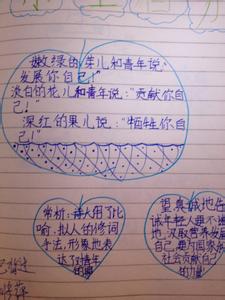 嫩绿的芽儿和青年说:
发展你自己!"
淡白的花儿和青年说:"贡献你自
己!"
深红的果儿说:"牺牲你自
己!"
赏析:诗人用了比
喻,拟人的修辞
手法,形象地表
达了对青年
的
恩典诚地告
诫年轻人要不
地,汲取营养发展
自己,要为国家和
社会贡献自己
的力量